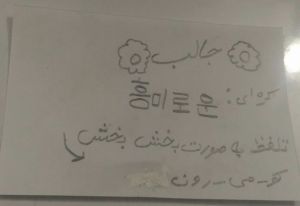 جالب
کره ای: 흥미로운
تلفظ به صورت بخش بخش
می - رون